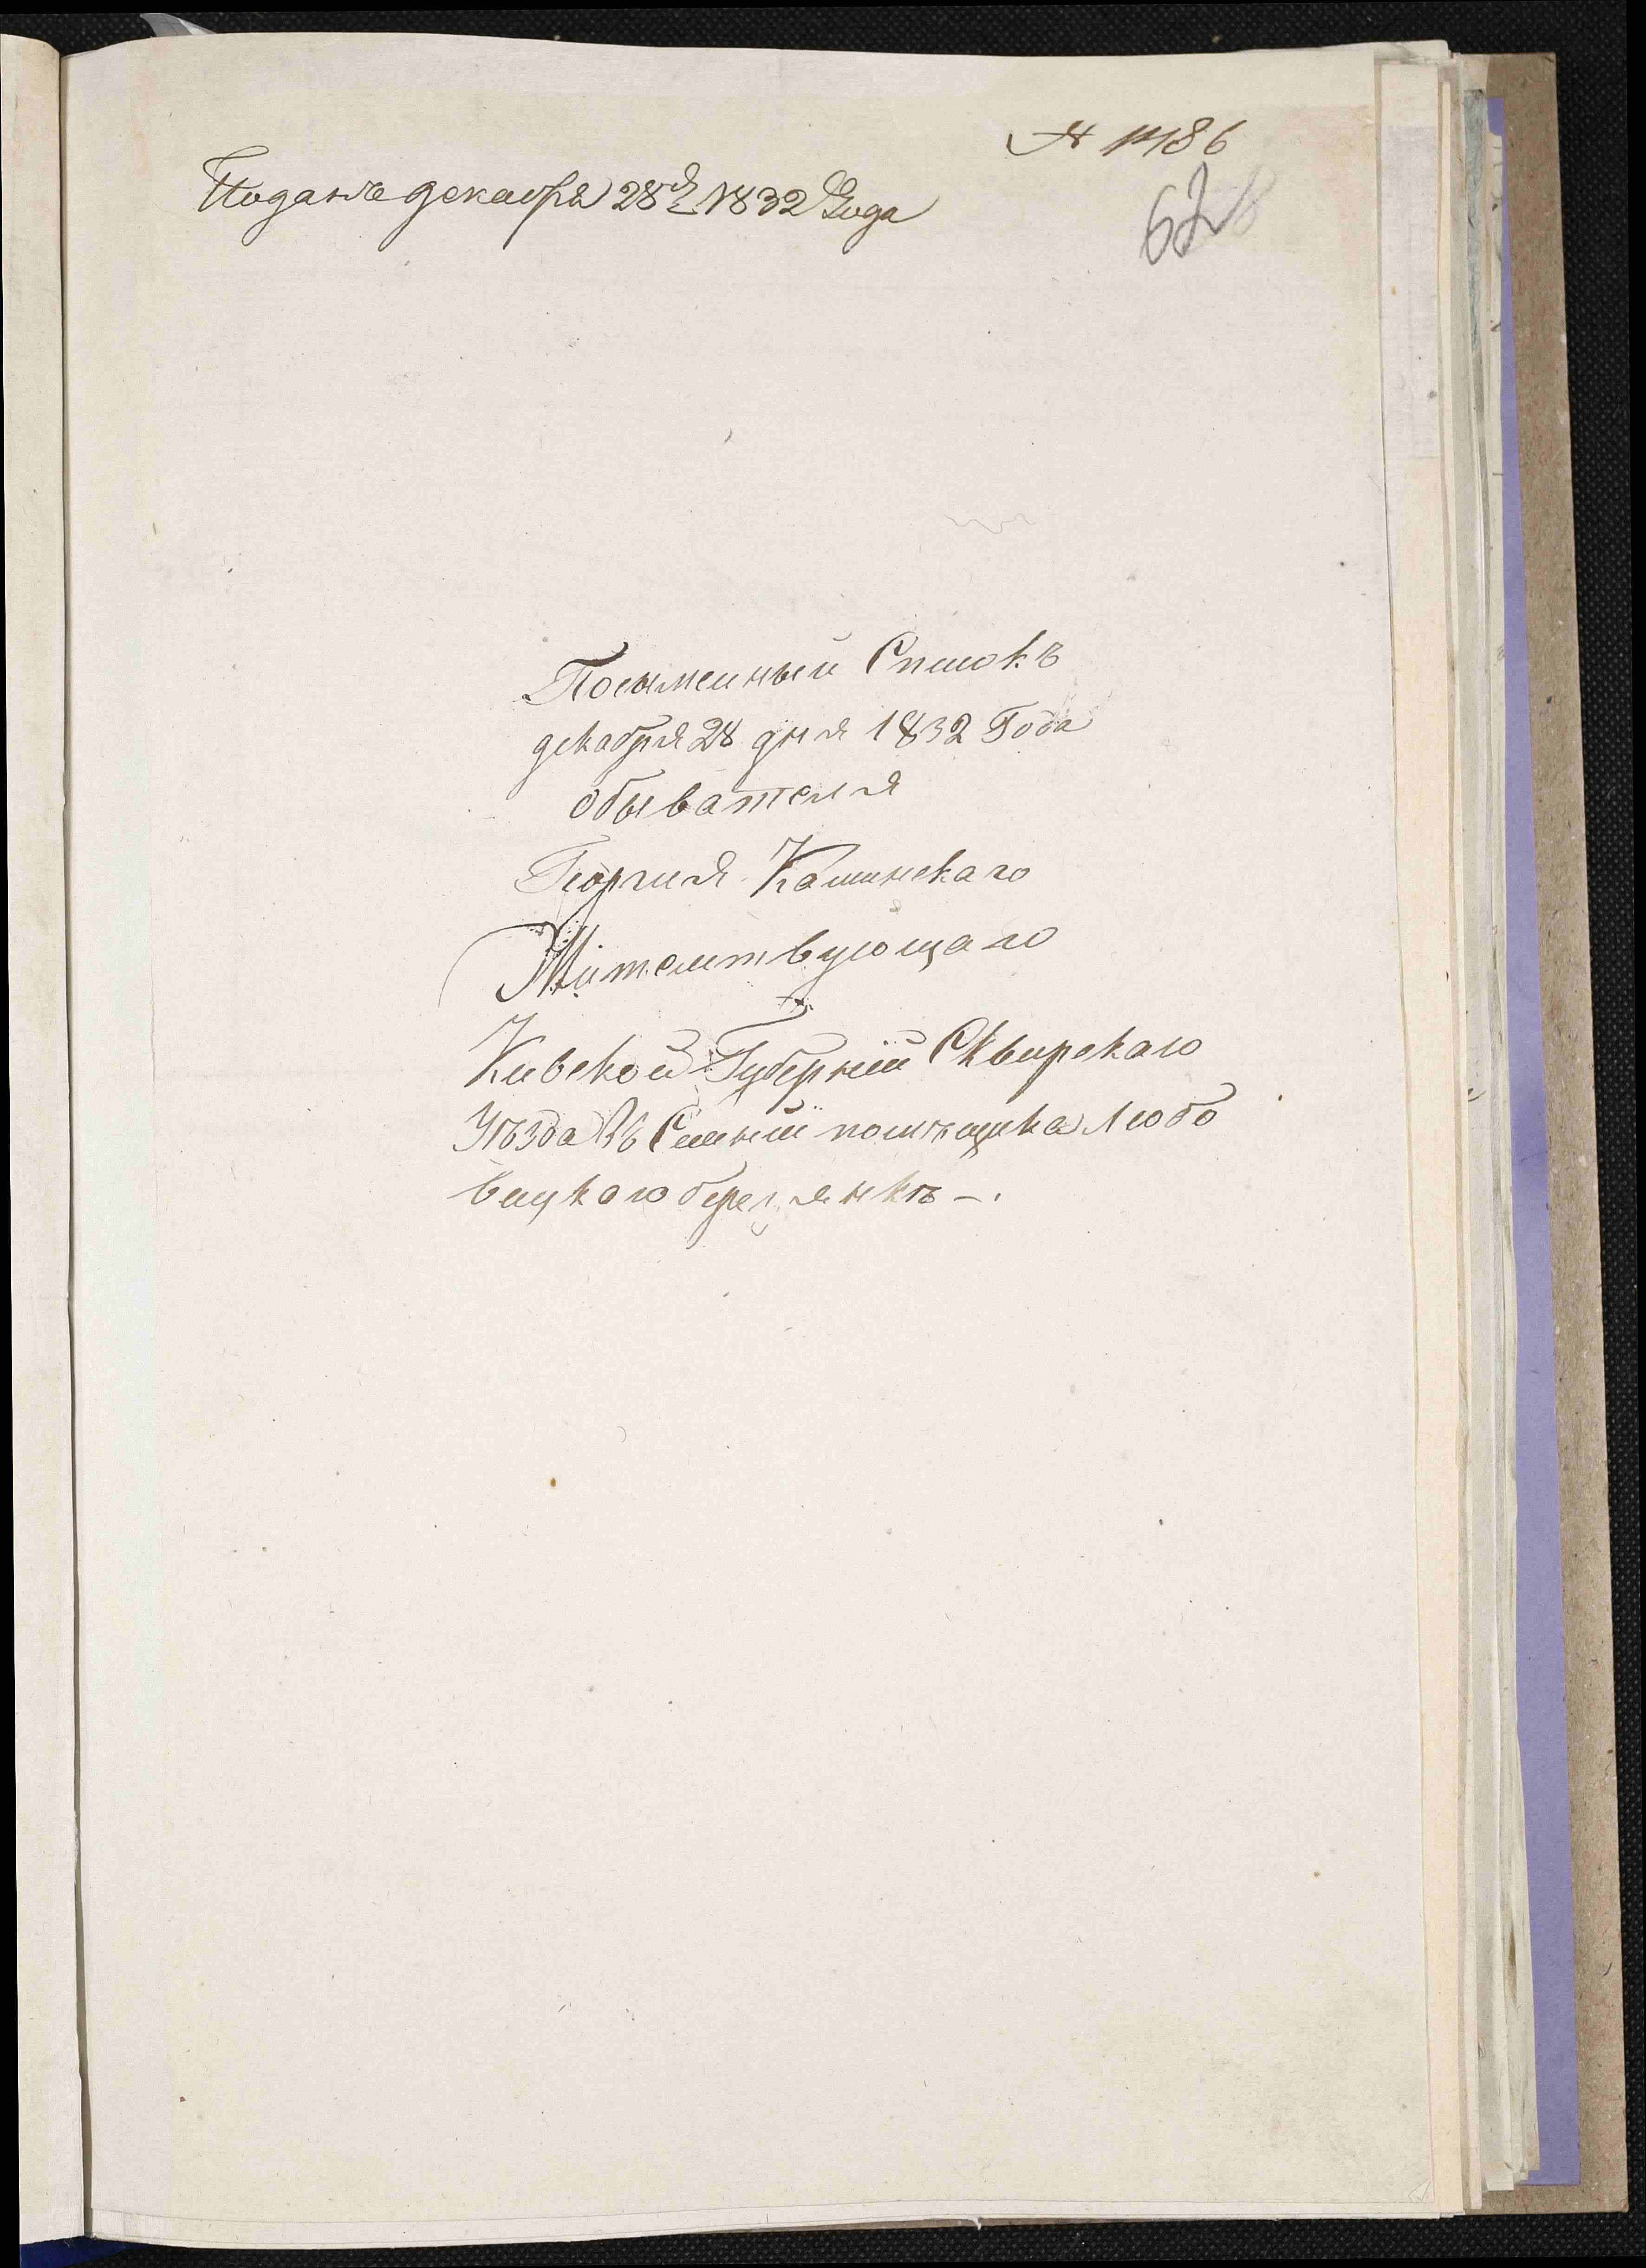 № 1486
Подана декабря 28го 1832 Года
62
Поеыменный Списокъ
декабря 28 дня 1832 Года
обывателя
Георгия Каминскаго
Жительствующаго
Кивской Губерніи Сквирскаго
Уѣзда Въ Сѣленіи помѣщика Любо
вицкаго березянкѣ -.